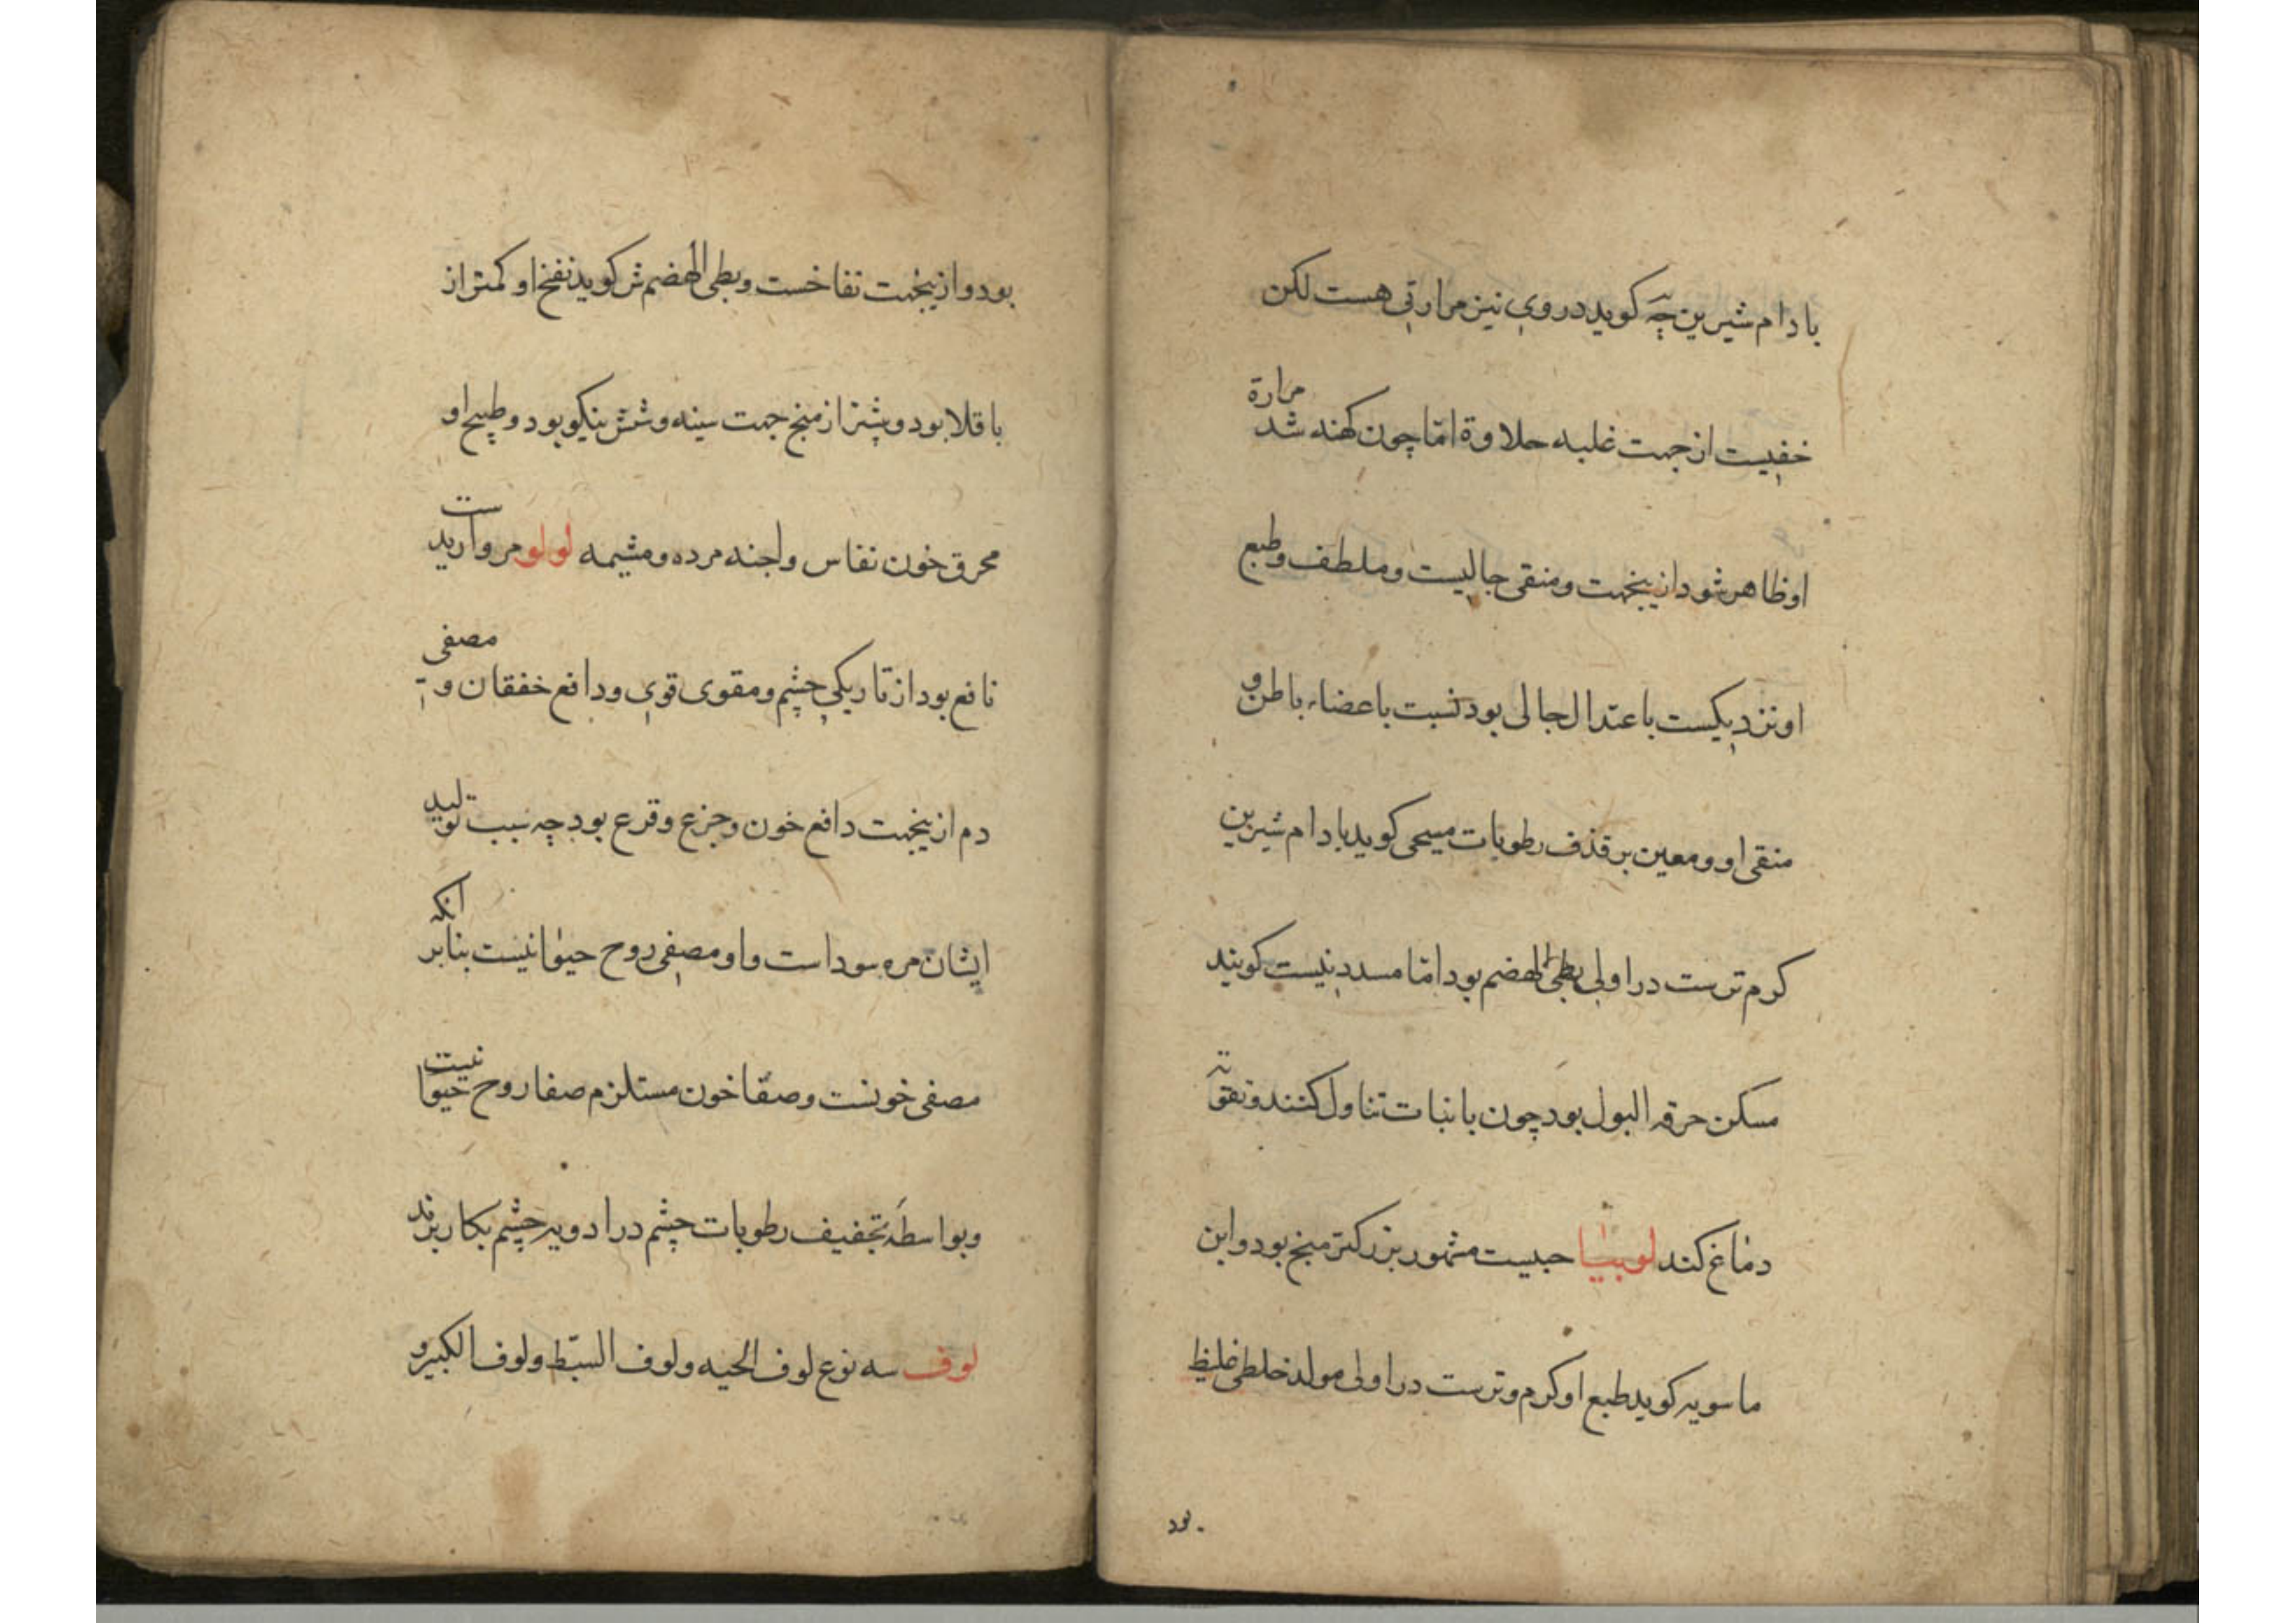 بادام شیرین چه کوید در وی نیز مرارتی هست لکن
خفیست از جهت غلبه حلاوة امّا چون کهنه شد مرارة
او ظاهر شود ازینجهت و منقی جالیست و ملطف و طبع
او نزدیکست باعتدال جالی بود نسبت باعضاء باطن و
منقی او و معین بر قذف رطوبات مسیحی کوید بادام شیرین
کرم ترست در اولی بطی الهضم بود امّا مسدد نیست کویند
مسکن حرقه البول بود چون با نبات تناول کنند و تقویة
دماغ کند لوبیا حبیست مشهور بزرکتر منج بود و ابن
ماسویه کوید طبع او کرم و ترست در اولی مولد خلطی غلیظ
بود
بود و ازینجهت نفاخست و بطی الهضم ش کوید نفخ او کمتر از
باقلا بود و پشتر از منج جهت سینه و شش نیکو بود و طبیخ او
محرق خون نفاس و اجنه مرده و مشیمه لولو مرواریدست
نافع بود از تاریکی چشم و مقوی قوی و دافع خفقان و مصفی
دم ازینجهت دافع خون و جزع و قرع بود چه سبب تولید
ایشان مره سوداست و او مصفی روح حیوانیست بنابر انکه
مصفی خونست و صفا خون مستلزم صفا روح حیوانیست
و بواسطه تجفیف رطوبات چشم در ادویه چشم بکار برند
لوف سه نوع لوف الحیه و لوف السبّط و لوف الکبیر و